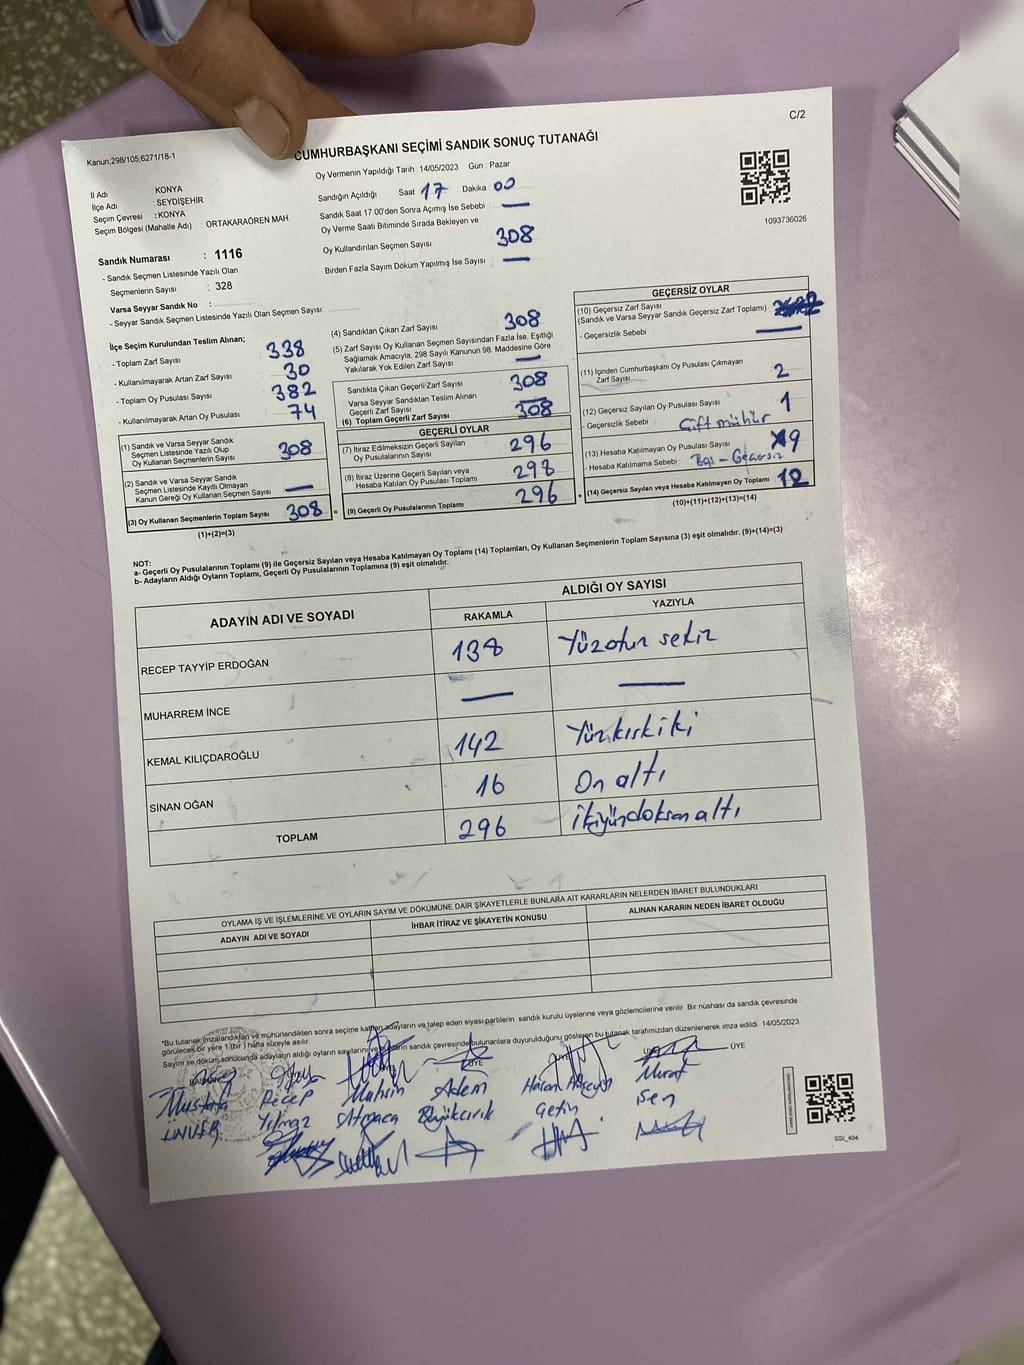 C/2
Kanun,298/105,6271/18-1
CUMHURBAŞKANI SEÇİMİ SANDIK SONUÇ TUTANAĞI
Oy Vermenin Yapıldığı Tarih : 14/05/2023 Gün : Pazar
İl Adı : KONYA
İlçe Adı : SEYDİŞEHİR
Seçim Çevresi : KONYA
Seçim Bölgesi (Mahalle Adı) : ORTAKARAÖREN MAH.
Sandığın Açıldığı Saat 17 Dakika : 00
Sandık Saat 17:00'den Sonra Açımış İse Sebebi —
Oy Verme Saati Bitiminde Sırada Bekleyen ve
Oy Kullandırılan Seçmen Sayısı 308
Birden Fazla Sayım Döküm Yapılmış İse Sayısı —
1093736026
Sandık Numarası : 1116
- Sandık Seçmen Listesinde Yazılı Olan
Seçmenlerin Sayısı : 328
Varsa Seyyar Sandık No :
- Seyyar Sandık Seçmen Listesinde Yazılı Olan Seçmen Sayısı:
İlçe Seçim Kurulundan Teslim Alınan;
- Toplam Zarf Sayısı 338
- Kullanılmayarak Artan Zarf Sayısı 30
- Toplam Oy Pusulası Sayısı 382
- Kullanılmayarak Artan Oy Pusulası 74
(1) Sandık ve Varsa Seyyar Sandık
Seçmen Listesinde Yazılı Olup
Oy Kullanan Seçmenlerin Sayısı 308
(2) Sandık ve Varsa Seyyar Sandık
Seçmen Listesinde Kayıtlı Olmayan
Kanun Gereği Oy Kullanan Seçmen Sayısı —
(3) Oy Kullanan Seçmenlerin Toplam Sayısı 308
(1)+(2)=(3)
(4) Sandıktan Çıkan Zarf Sayısı 308
(5) Zarf Sayısı Oy Kullanan Seçmen Sayısından Fazla İse, Eşitliği
Sağlamak Amacıyla, 298 Sayılı Kanunun 98. Maddesine Göre
Yakılarak Yok Edilen Zarf Sayısı —
Sandıkta Çıkan Geçerli Zarf Sayısı 308
Varsa Seyyar Sandıktan Teslim Alınan
Geçerli Zarf Sayısı —
(6) Toplam Geçerli Zarf Sayısı 308
GEÇERLİ OYLAR
(7) İtiraz Edilmeksizin Geçerli Sayılan
Oy Pusulalarının Sayısı 296
(8) İtiraz Üzerine Geçerli Sayılan veya
Hesaba Katılan Oy Pusulası Toplamı 298
(9) Geçerli Oy Pusulalarının Toplamı 296
GEÇERSİZ OYLAR
(10) Geçersiz Zarf Sayısı
(Sandık ve Varsa Seyyar Sandık Geçersiz Zarf Toplamı)
- Geçersizlik Sebebi : —
(11) İçinden Cumhurbaşkanı Oy Pusulası Çıkmayan
Zarf Sayısı 2
(12) Geçersiz Sayılan Oy Pusulası Sayısı 1
- Geçersizlik Sebebi : Çift mühür
(13) Hesaba Katılmayan Oy Pusulası Sayısı 9
- Hesaba Katılmama Sebebi : Boş - Geçersiz
(14) Geçersiz Sayılan veya Hesaba Katılmayan Oy Toplamı 12
(10)+(11)+(12)+(13)=(14)
NOT:
a- Geçerli Oy Pusulalarının Toplamı (9) ile Geçersiz Sayılan veya Hesaba Katılmayan Oy Toplamı (14) Toplamları, Oy Kullanan Seçmenlerin Toplam Sayısına (3) eşit olmalıdır. (9)+(14)=(3)
b- Adayların Aldığı Oyların Toplamı, Geçerli Oy Pusulalarının Toplamına (9) eşit olmalıdır.
ADAYIN ADI VE SOYADI
ALDIĞI OY SAYISI
RAKAMLA YAZIYLA
RECEP TAYYİP ERDOĞAN 138 Yüzotuz sekiz
MUHARREM İNCE — —
KEMAL KILIÇDAROĞLU 142 Yüzkırkiki
SİNAN OĞAN 16 On altı
TOPLAM 296 ikiyüzdoksanaltı
OYLAMA İŞ VE İŞLEMLERİNE VE OYLARIN SAYIM VE DÖKÜMÜNE DAİR ŞİKAYETLERLE BUNLARA AİT KARARLARIN NELERDEN İBARET BULUNDUKLARI
ADAYIN ADI VE SOYADI İHBAR İTİRAZ VE ŞİKAYETİN KONUSU ALINAN KARARIN NEDEN İBARET OLDUĞU
"Bu tutanak imzalandıktan ve mühürlendikten sonra seçime katılan adayların ve talep eden siyasi partilerin sandık kurulu üyelerine veya gözlemcilerine verilir. Bir nüshası da sandık çevresinde
görülecek bir yere 1 (bir) hafta süreyle asılır.
Sayım ve döküm sonucunda adayların aldığı oyların sayılarını ve sandık çevresinde bulunanlara duyurulduğunu gösteren bu tutanak tarafımızdan düzenlenerek imza edildi. 14/05/2023
ÜYE
Mustafa Recep Muhsin Adem Hasan Hüseyin Murat
ÜNVER Yılmaz Atmaca Büyükcırık Çetin Şen
SSI_404